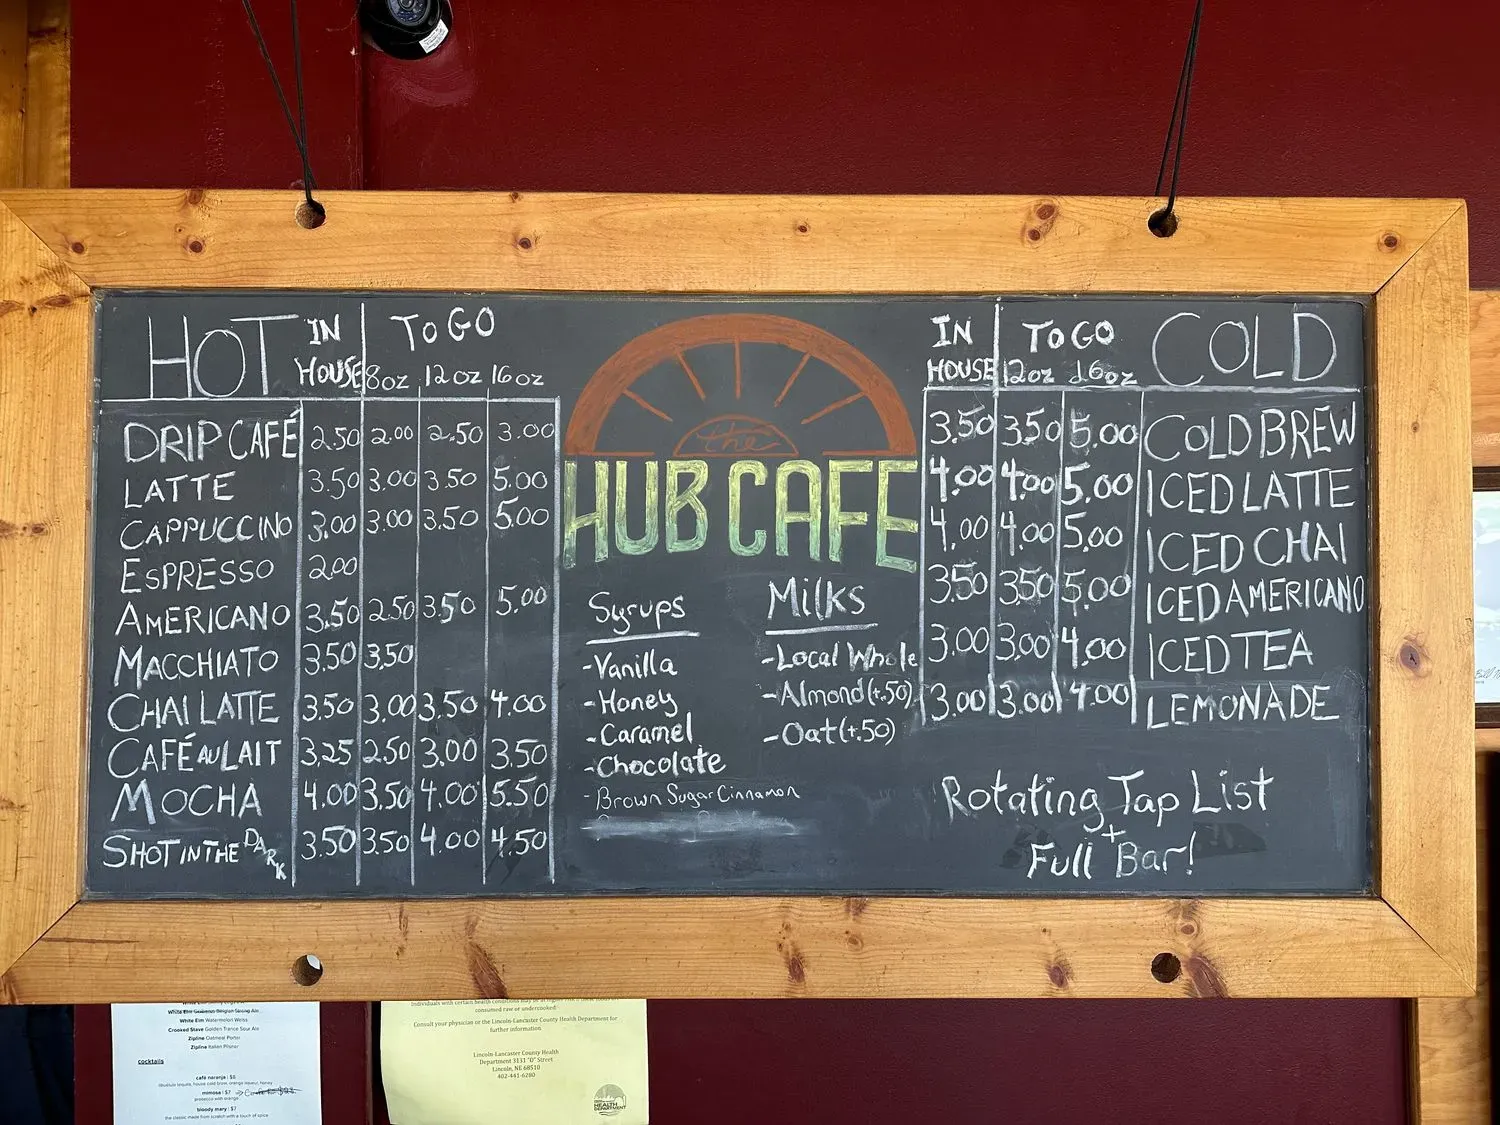 HOT IN HOUSE TO GO
8oz 12oz 16oz
DRIP CAFÉ 2.50 2.00 2.50 3.00
LATTE 3.50 3.00 3.50 5.00
CAPPUCCINO 3.00 3.00 3.50 5.00
ESPRESSO 2.00
AMERICANO 3.50 2.50 3.50 5.00
MACCHIATO 3.50 3.50
CHAI LATTE 3.50 3.00 3.50 4.00
CAFÉ AU LAIT 3.25 2.50 3.00 3.50
MOCHA 4.00 3.50 4.00 5.50
SHOT IN THE DARK 3.50 3.50 4.00 4.50
the
HUB CAFE
Syrups
-Vanilla
-Honey
-Caramel
-Chocolate
-Brown Sugar Cinnamon
Milks
-Local Whole
-Almond (+.50)
-Oat (+.50)
IN HOUSE TO GO COLD
12oz 16oz
3.50 3.50 5.00 COLD BREW
4.00 4.00 5.00 ICED LATTE
4.00 4.00 5.00 ICED CHAI
3.50 3.50 5.00 ICED AMERICANO
3.00 3.00 4.00 ICED TEA
3.00 3.00 4.00 LEMONADE
Rotating Tap List
+
Full Bar!
White Elm Watermelon Weiss
Crooked Stave Golden Trance Sour Ale
Zipline Oatmeal Porter
Zipline Italian Pilsner
cocktails
café naranja | $8
mimosa | $7
prosecco with orange
bloody mary | $7
the classic made from scratch with a touch of spice
consumed raw or undercooked
Consult your physician or the Lincoln-Lancaster County Health Department for
further information
Lincoln-Lancaster County Health
Department 3131 "O" Street
Lincoln, NE 68510
402-441-6280
HEALTH
DEPARTMENT